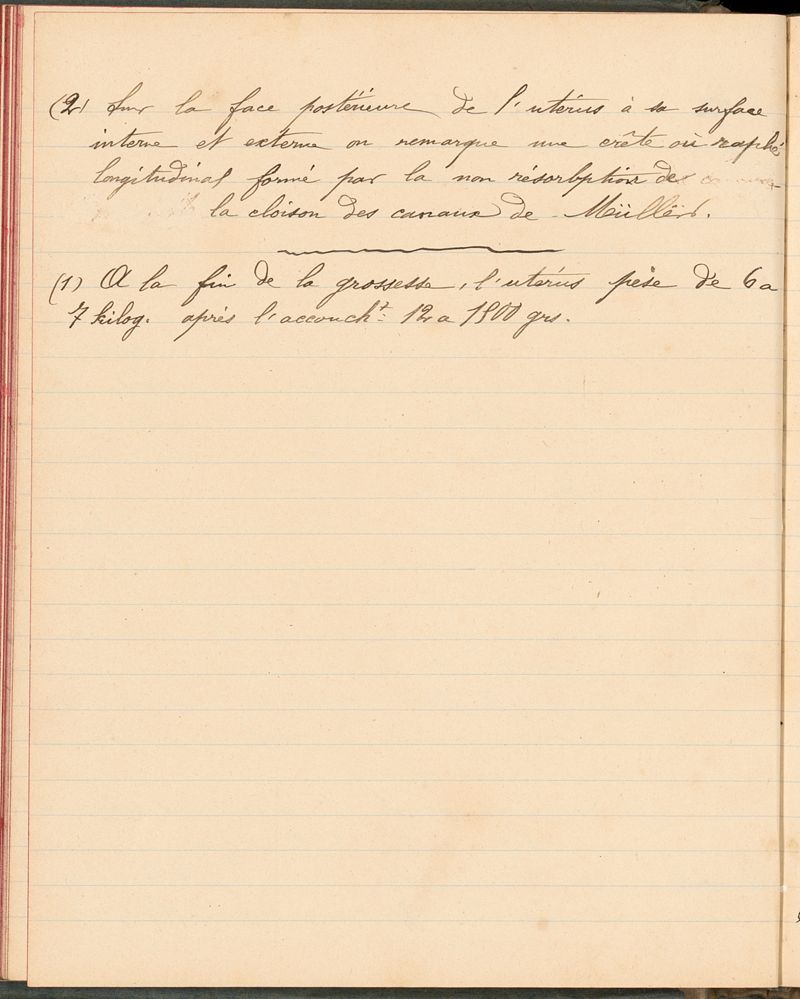 (2) Sur la face postérieure de l'utérus à sa surface
interne et externe on remarque une crête où raphé
longitudinal formé par la non résorbption de
la cloison des canaux de Müllër.
(1) A la fin de la grossesse, l'utérus pèse de 6 a
7 kilog. après l'accouch^t 12 a 1500 grs.